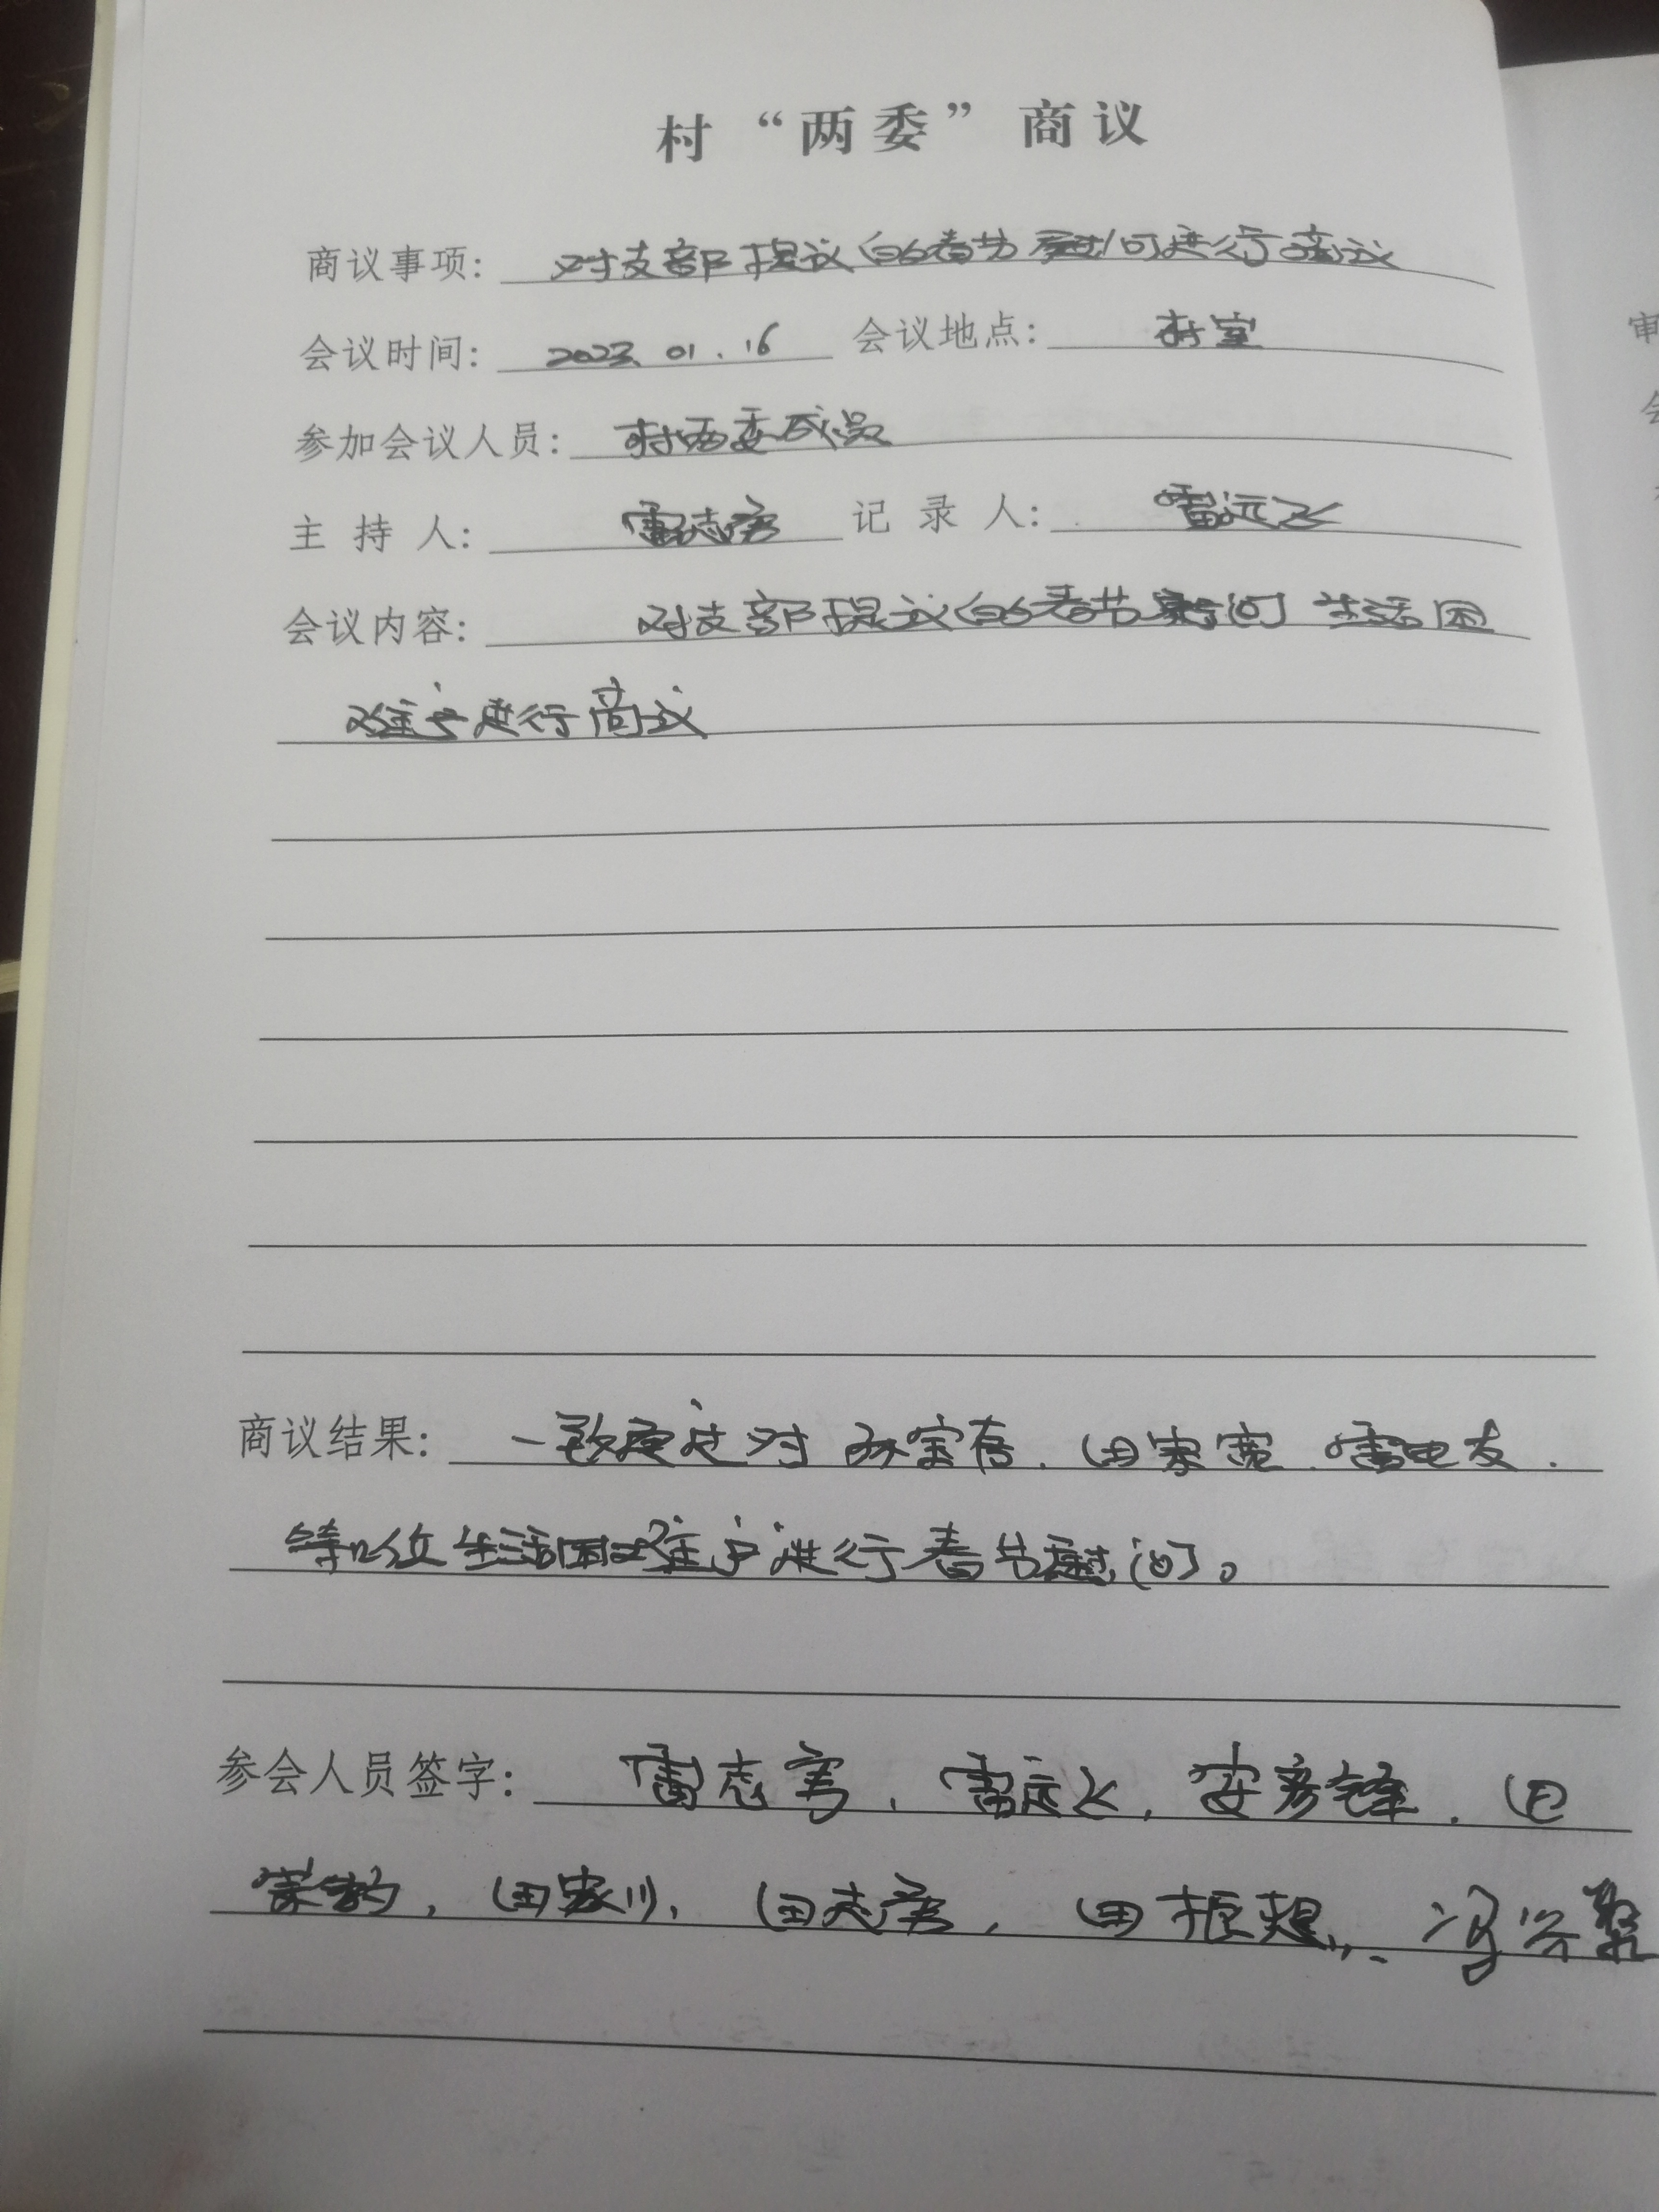 村“两委”商议
商议事项: 对支部提议的春节慰问进行商议
会议时间: 2023.01.16 会议地点: 村室
参加会议人员: 村两委成员
主持人: 雷志勇 记录人: 雷远飞
会议内容: 对支部提议的春节慰问生活困
难户进行商议
商议结果: 一致通过对孙宝存、田家宽、雷电友、
等以位生活困难户进行春节慰问。
参会人员签字: 雷志勇, 雷远飞, 安彦锋, 田
田家川, 田志勇, 田振想, 冯
审
会